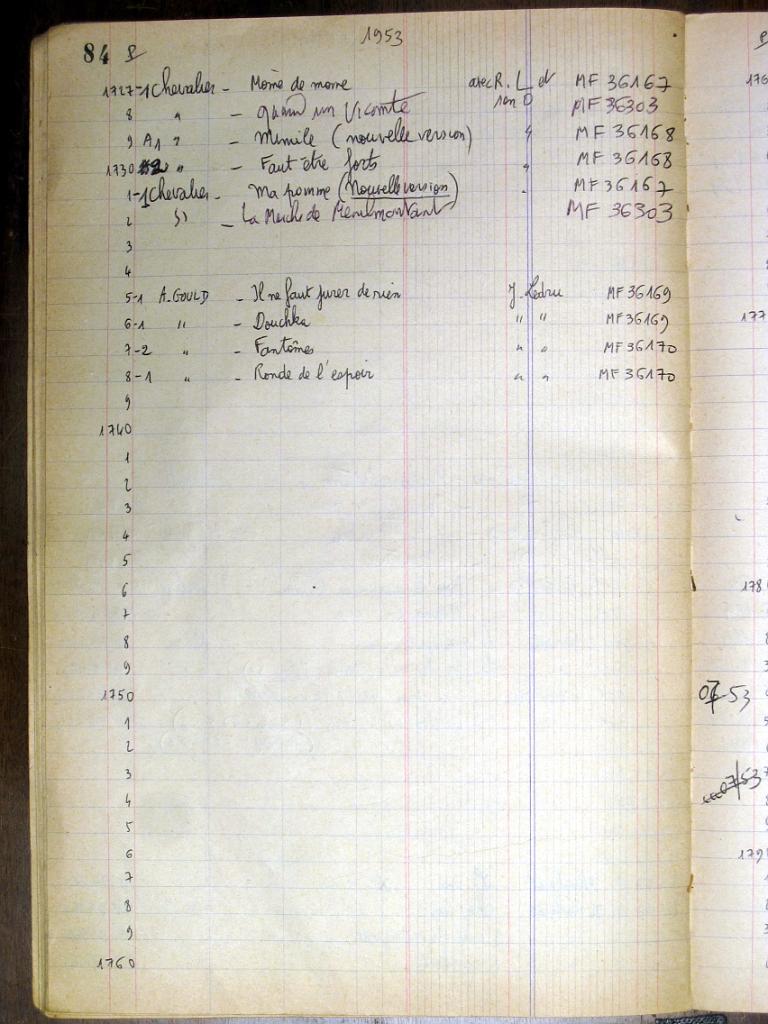 1953
84
1727-1 Chevalier - Môme de mome avec R. L et MF 36167
8 " - quand un Vicomte son O MF 36303
9 A1 " - Mimile (nouvelle version) " MF 36168
1730 " - Faut être forts " MF 36168
1-1 Chevalier - Ma pomme (Nouvelle version) " MF 36167
2 " - La Marche de Menilmontant MF 36303
3
4
5-1 A. GOULD - Il ne faut jurer de rien J. Ledru MF 36169
6-1 " - Douchka " " MF 36169
7-2 " - Fantômes " " MF 36170
8-1 " - Ronde de l'espoir " " MF 36170
9
1740
1
2
3
4
5
6
7
8
9
1750
1
2
3
4
5
6
7
8
9
1760
176
177
178
53
53
179